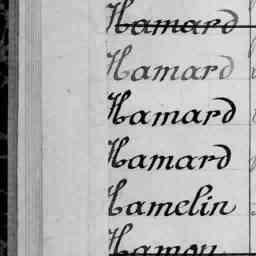 Hamard
Hamard
Hamard
Hamard
Hamelin
Hamon